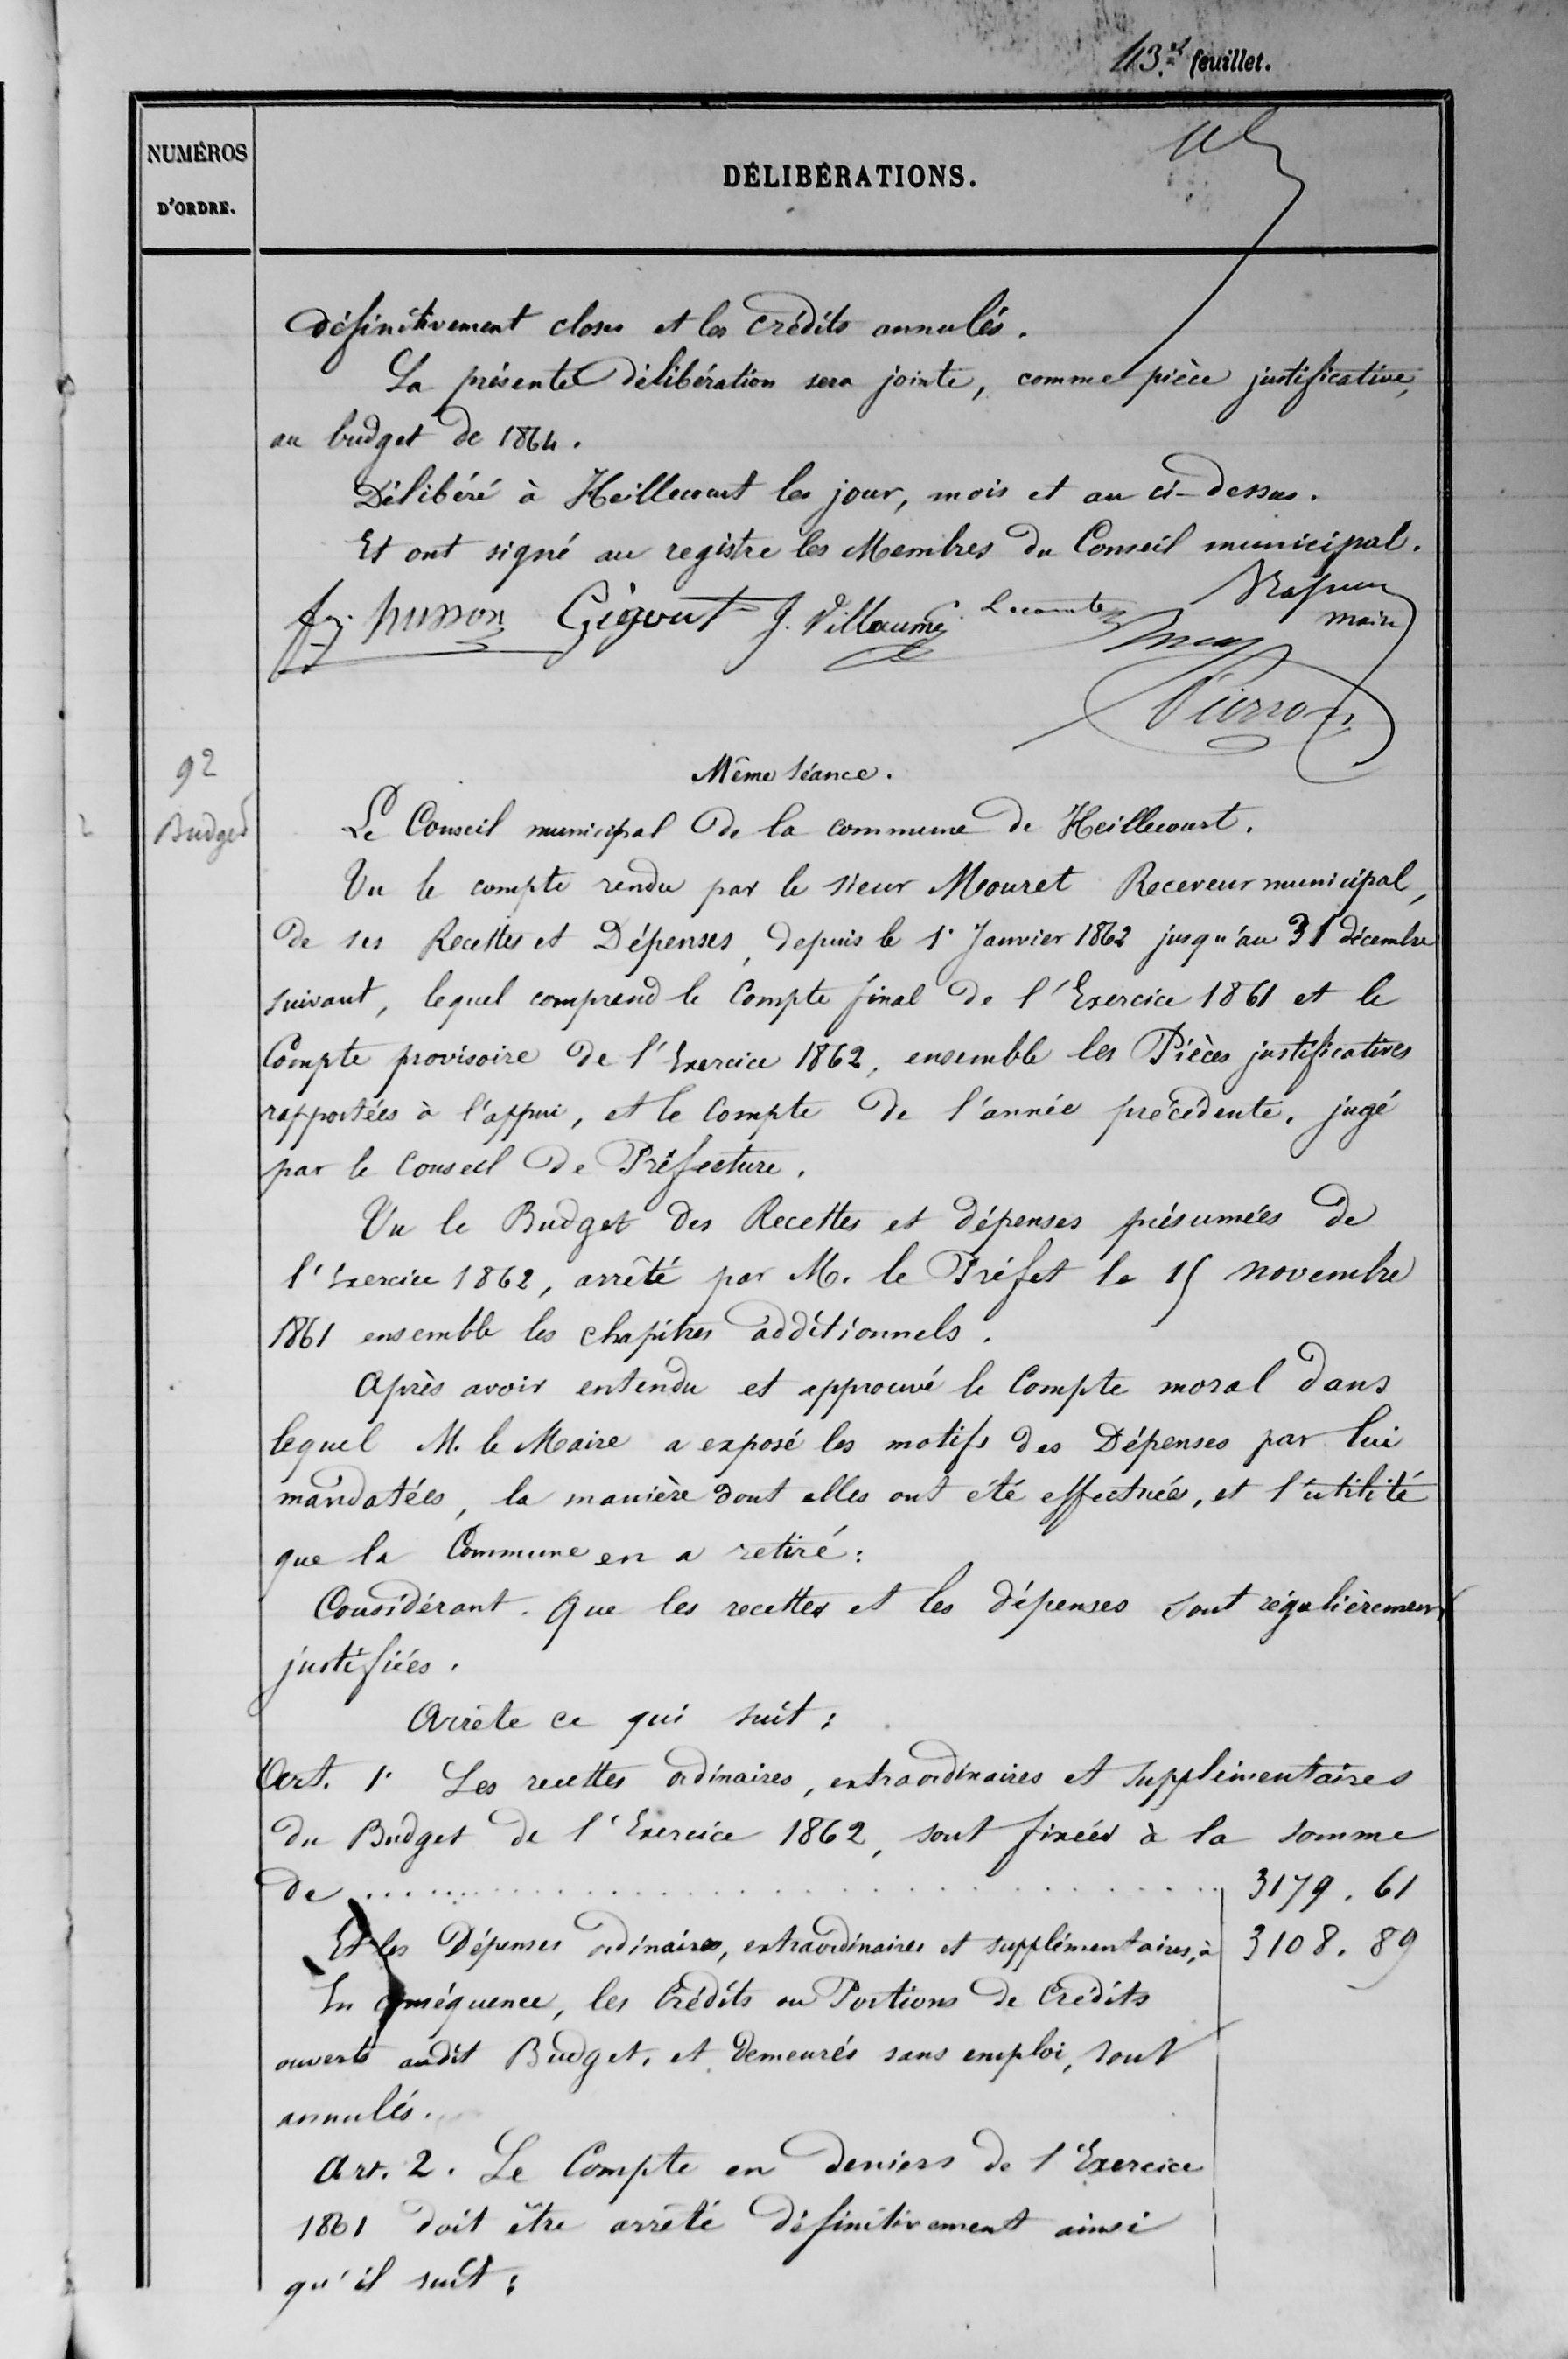 43.et feuillet.
NUMÉROS
D'ORDRE.
DÉLIBÉRATIONS.
définitivement closes et les crédits annulés.
La présente délibération sera jointe, comme pièce justificative,
au budget de 1864.
Délibéré à Heillecourt les jour, mois et an ci-dessus.
Et ont signé au registre les Membres du Conseil municipal.
husson Gigout J. Villaumé Lecomte
maire
Pierron
92
Budget
Même séance.
Le Conseil municipal de la commune de Heillecourt.
Vu le compte rendu par le sieur Mouret Receveur municipal,
de ses Recettes et Dépenses, depuis le 1er Janvier 1862 jusqu'au 31 décembre
suivant, lequel comprend le Compte final de l'Exercice 1861 et le
Compte provisoire de l'Exercice 1862, ensemble les Pièces justificatives
rapportées à l'appui, et le Compte de l'année précédente, jugé
par le Conseil de Préfecture.
Vu le Budget des Recettes et dépenses présumées de
l'Exercice 1862, arrêté par M. le Préfet le 15 novembre
1861 ensemble les chapitres additionnels.
Après avoir entendu et approuvé le Compte moral dans
lequel M. le Maire a exposé les motifs des Dépenses par lui
mandatées, la manière dont elles ont été effectuées, et l'utilité
que la Commune en a retiré:
Considérant. Que les recettes et les dépenses sont régulièrement
justifiées.
Arrête ce qui suit:
Art. 1er Les recettes ordinaires, extraordinaires et supplémentaires
du Budget de l'Exercice 1862, sont fixées à la somme
de ........................................ 3179.61
Et les Dépenses ordinaires, extraordinaires et supplémentaires, à 3108.89
En conséquence, les Crédits ou Portions de Crédits
ouverts audit Budget, et demeurés sans emploi, sont
annulés.
Art. 2. Le Compte en deniers de l'Exercice
1861 doit être arrêté définitivement ainsi
qu'il suit: